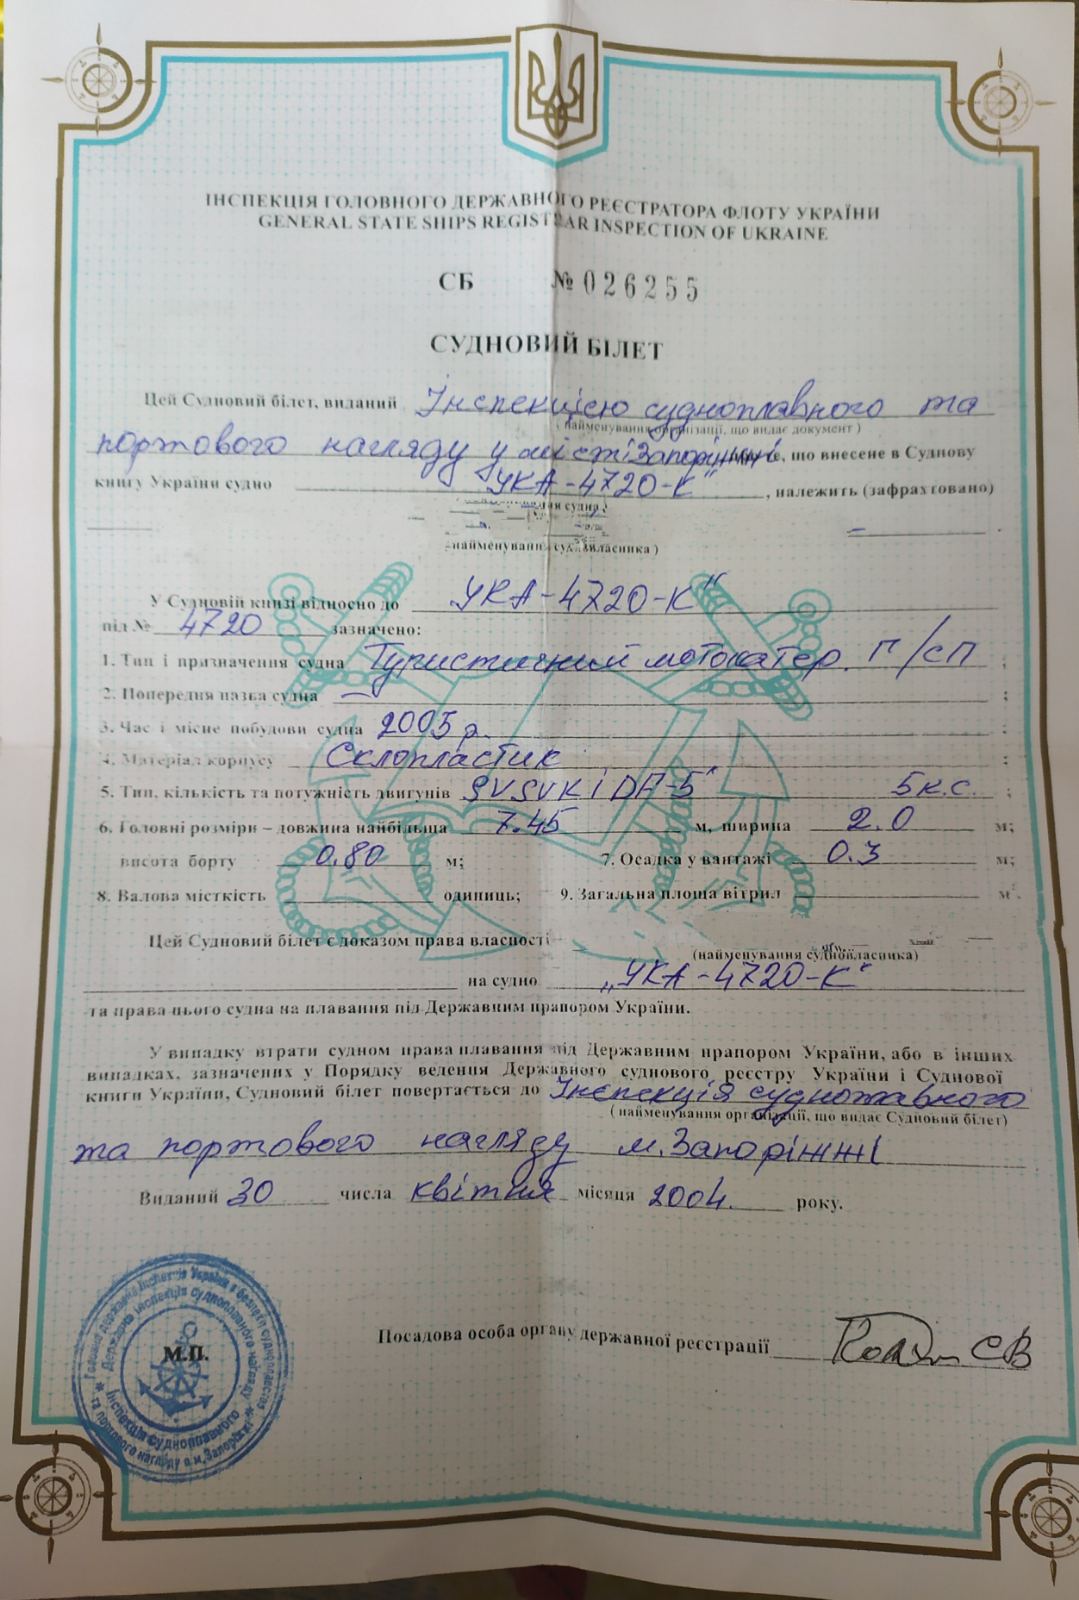 ІНСПЕКЦІЯ ГОЛОВНОГО ДЕРЖАВНОГО РЕЄСТРАТОРА ФЛОТУ УКРАЇНИ
GENERAL STATE SHIPS REGISTRAR INSPECTION OF UKRAINE
СБ № 026255
СУДНОВИЙ БІЛЕТ
Цей Судновий білет, виданий Інспекцією судноплавного та
( найменування організації, що видає документ )
портового нагляду у місті Запоріжжі, що внесене в Суднову
книгу України судно "УКА-4720-К" , належить (зафрахтовано)
(назва судна)
(найменування судновласника )
У Судновій книзі відносно до „УКА-4720-К"
під № 4720 зазначено:
1. Тип і призначення судна Туристичний мотокатер. п/сп ;
2. Попередня назва судна — ;
3. Час і місце побудови судна 2005 р. ;
4. Матеріал корпусу Склопластик ;
5. Тип, кількість та потужність двигунів 5 к.с. ;
6. Головні розміри – довжина найбільша 7.45 м, ширина 2.0 м;
висота борту 0.80 м; 7. Осадка у вантажі 0.3 м;
8. Валова місткість одиниць; 9. Загальна площа вітрил м²
Цей Судновий білет є доказом права власності
(найменування судновласника)
на судно „УКА-4720-К"
та права цього судна на плавання під Державним прапором України.
У випадку втрати судном права плавання під Державним прапором України, або в інших
випадках, зазначених у Порядку ведення Державного суднового реєстру України і Суднової
книги України, Судновий білет повертається до Інспекція судноплавного
( найменування організації, що видає Судновий білет)
та портового нагляду м. Запоріжжі
Виданий 30 числа квітня місяця 2004. року.
Посадова особа органу державної реєстрації
М.П.
Головна державна інспекція України з безпеки судноплавства
Державна інспекція судноплавного нагляду
Інспекція судноплавного
та портового нагляду в м. Запоріжжі